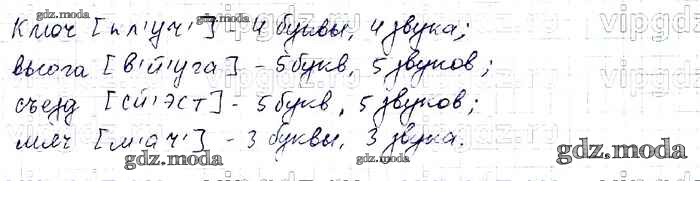 Ключ [кл'уч'] - 4 буквы, 4 звука;
вьюга [в'й'уга] - 5 букв, 5 звуков;
съезд [сй'эст] - 5 букв, 5 звуков;
мяч [м'ач'] - 3 буквы, 3 звука.
gdz.moda
gdz.moda
gdz.moda
gdz.moda
gdz.moda